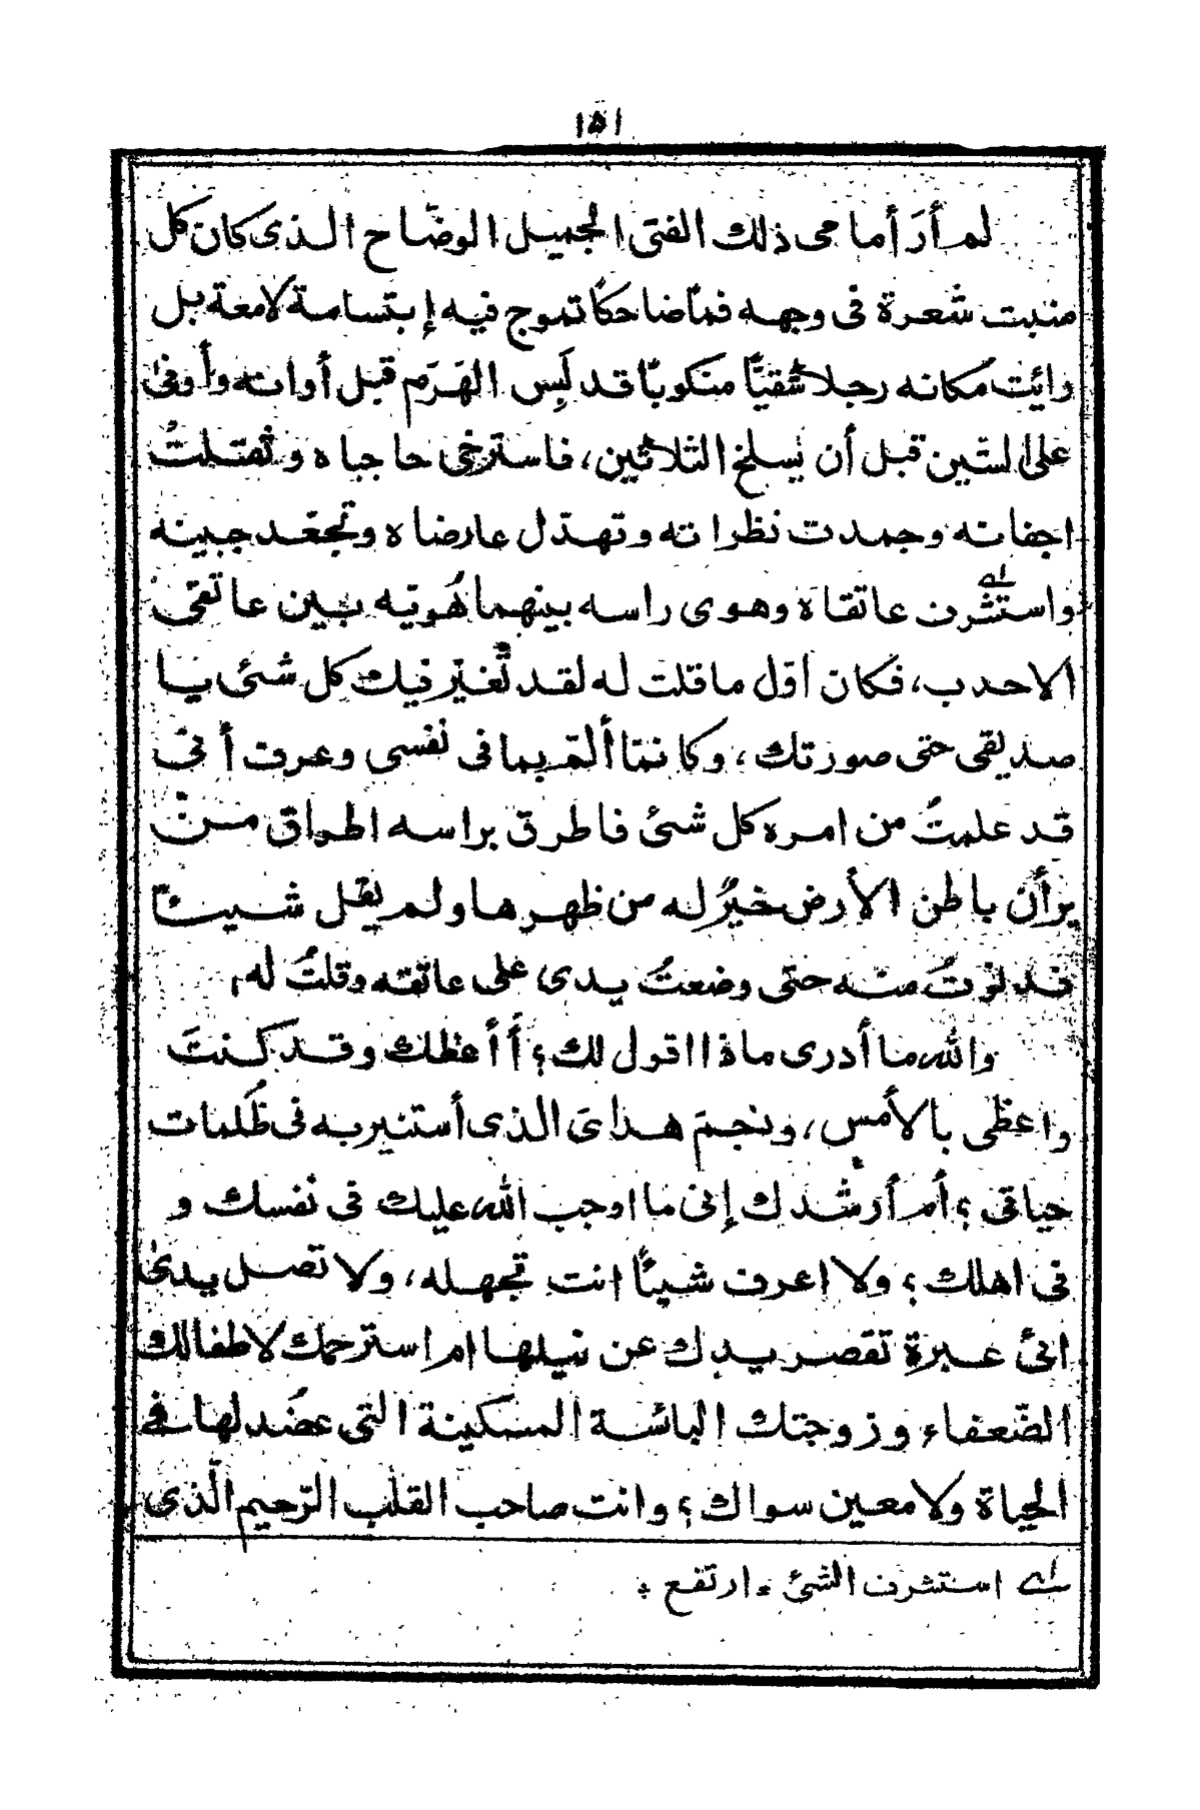 ١٥١
لم أرَ أمامى ذلك الفتى الجميل الوضّاح الذى كان كل
منبت شعرة فى وجهه فمًا ضاحكًا تموج فيه إبتسامة لامعة بل
رائيت مكانه رجلا شقيًّا منكوبًا قد لَبِس الهَرَم قبل أوانه وأوفى
على الستّين قبل أن يسلخ الثلاثين، فاسترخى حاجباه وثقلتْ
اجفانه وجمدت نظراته وتهدّل عارضاه وتجعّد جبينه
واستشرف عاتقاه وهوى راسه بينهما هُويّه بين عاتقى
الاحدب، فكان اوّل ما قلت له لقد تَغيّر فيك كل شئ يا
صديقى حتى صورتك، وكانمّا ألمّ بما فى نفسى وعرف أنّى
قد علمتُ من امره كل شئ فاطرق براسه اطراق مَنْ
يرأن باطن الأرض خيرٌ له من ظهرها ولم يقل شيئًا
فدنوتُ منه حتى وضعتُ يدى على عاتقه وقلتُ له،
والله ما أدرى ماذا اقول لك؟ أأعظك وقد كنتَ
واعظى بالأمس، ونجمَ هداىَ الذى أستنير به فى ظُلمات
حياتى؟ أم أرشدك إلى ما اوجب الله عليك فى نفسك و
فى اهلك؟ ولا اعرف شيئًا انت تجهله، ولا تصل يدى
الىٰ عبرةٍ تقصر يدك عن نيلها ام استرحمك لاطفالك
الضّعفاء وزوجتك البائسة المسكينة التى لا عضُد لها فى
الحياة ولا معين سواك؟ وانت صاحب القلب الرّحيم الّذى
لے استشرف الشئ = ارتفع :